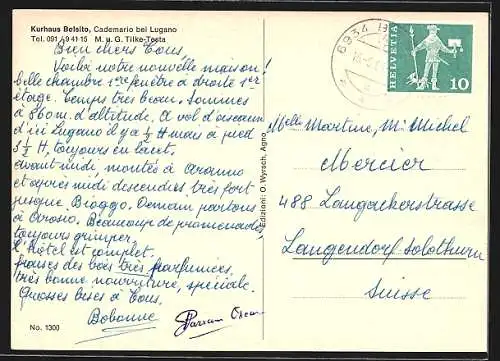 Kurhaus Belsito, Cademario bei Lugano
Tel. 091 / 9 41 15 M. u. G. Tilke-Testa
Bien chers Tous.
Voilà notre nouvelle maison!
belle chambre 1re fenêtre à droite 1er
étage. Temps très beau. Sommes
à 860 m. d'altitude. A vol d'oiseau
d'ici Lugano il y a ½ H mais à pied
3½ H, toujours en lacet.
avant-midi, montés à Aranno
et après-midi descendus très fort
jusque Bioggo. Demain partons
à Arosio. Beaucoup de promenades
toujours grimper.
L'hôtel est complet.
fraises des bois très parfumées.
très bonne nourriture, spéciale.
Grosses bises à Tous.
Bobonne Parrain Oscar
No. 1300
Edizioni: O. Wyrsch, Agno
6934
HELVETIA
10
Melle Martine, Mr Michel
Mercier
488 Langackerstrasse
Langendorf solothurn
Suisse